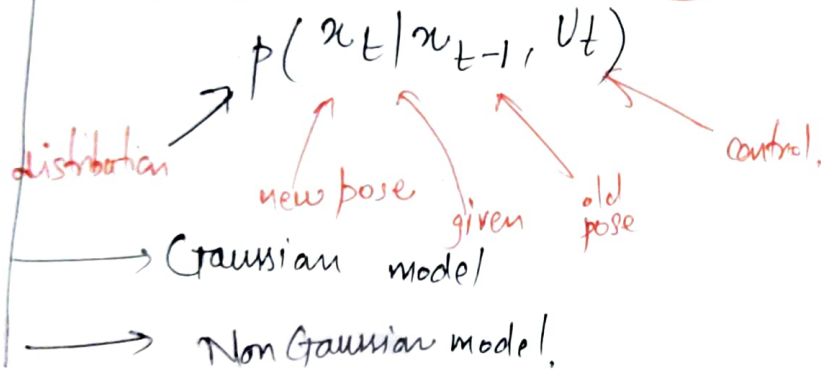 p( x_t | x_{t-1}, U_t )
distribution
new pose
given
old
pose
control.
Gaussian model
Non Gaussian model.